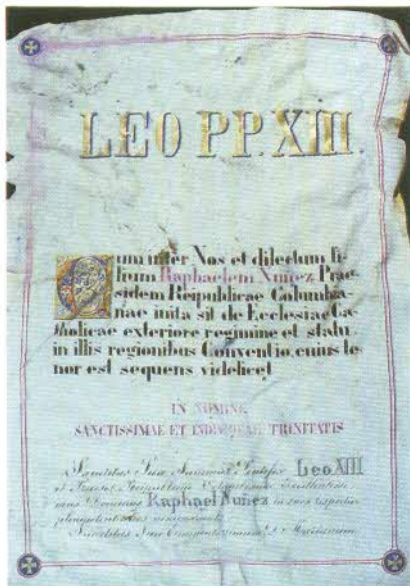 LEO PP. XIII.
Cum inter Nos et dilectum fi-
lium Raphaelem Nuñez Prae-
sidem Reipublicae Columbia-
nae inita sit de Ecclesiae Ca-
tholicae exteriore regimine et statu
in illis regionibus Conventio, cuius te-
nor est sequens videlicet
IN NOMINE
SANCTISSIMAE ET INDIVIDUAE TRINITATIS
Sanctitas Sua Summus Pontifex Leo XIII
et Excellentis-
Dominus Raphael Nuñez in suos respective
plenipotentiarios
Sanctitas Sua